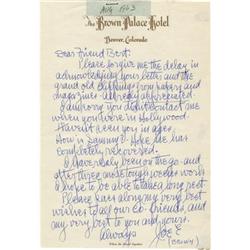 AUG 1963
The Brown Palace Hotel
Denver, Colorado
Dear Friend Bert:
Please forgive me the delay in
acknowledging your letter and the
grand old clippings from papers and
magazines. all deeply appreciated.
I am sorry you didn't contact me
when you were in Hollywood.
Haven't seen you in ages.
How is Sammy D. Hope he has
completely recovered.
I have really been on the go - and
after three more tough weeks work
I hope to be able to take a long rest.
Please pass along my very best
wishes to all our Co-friends and
my very best to you and yours.
Always
Joe E
(Brown)